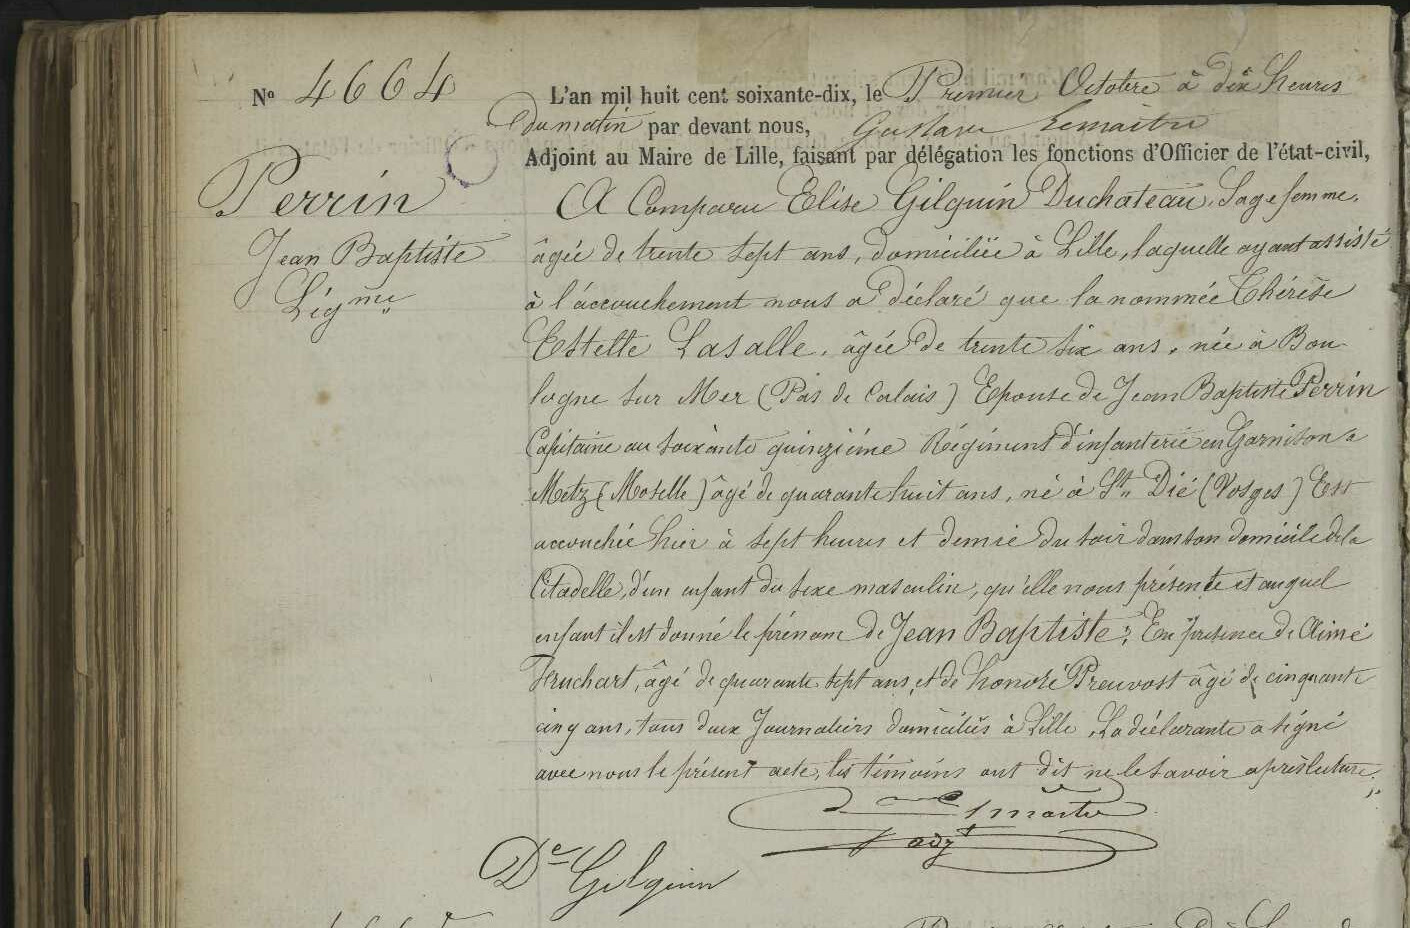 N° 4664
L'an mil huit cent soixante-dix, le Premier Octobre à dix heures
du matin par devant nous, Gustave Lemaitre
Adjoint au Maire de Lille, faisant par délégation les fonctions d'Officier de l'état-civil,
Perrin
Jean Baptiste
Légme
A Comparu Elise Gilquin Duchateau, Sage femme,
âgée de trente sept ans, domiciliée à Lille, laquelle ayant assisté
à l'accouchement nous a déclaré que la nommée Thérèse
Estelle Lasalle, âgée de trente six ans, née à Bou
logne sur Mer (Pas de Calais) Epouse de Jean Baptiste Perrin
Capitaine au soixante quinzième Régiment d'infanterie en Garnison a
Metz (Moselle) âgé de quarante huit ans, né à St Dié (Vosges) Est
accouchée hier à sept heures et demie du soir dans son domicile de la
Citadelle, d'un enfant du sexe masculin, qu'elle nous présente et auquel
enfant il est donné le prénom de Jean Baptiste; En présence de Aimé
Fruchart, âgé de quarante sept ans, et de honoré Prevvost âgé de cinquante
cinq ans, tous deux Journaliers domiciliés à Lille, La déclarante a signé
avec nous le présent acte, les témoins ont dit ne le savoir après lecture.
Lmaitre
adjt
De Gilquin